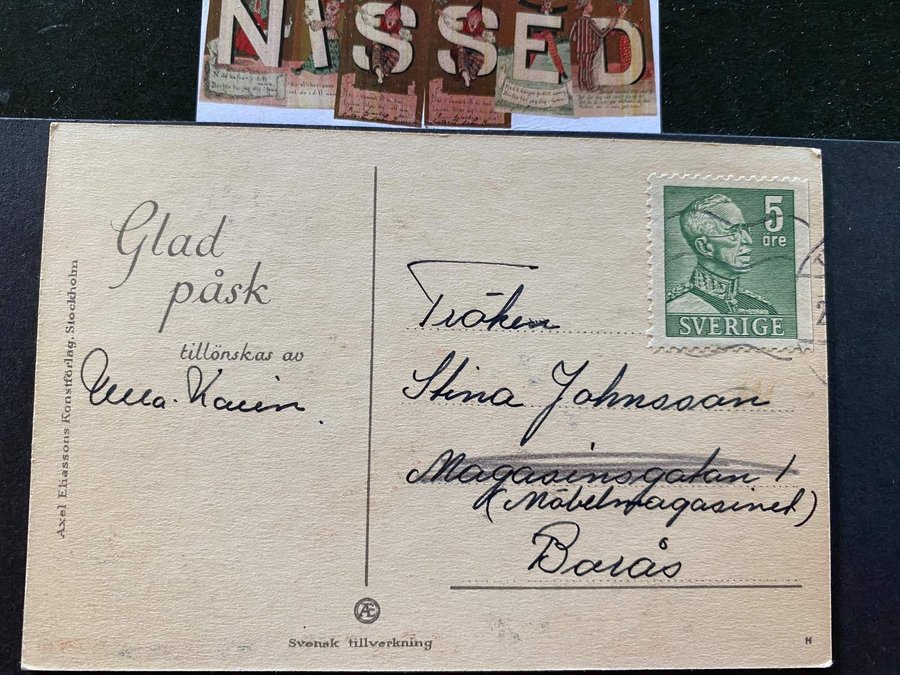 NISSED
Glad
påsk
tillönskas av
Axel Eliassons Konstförlag, Stockholm
5
öre
SVERIGE
Fröken
Stina Johnsson
Magasinsgatan 1
(Möbelmagasinet)
Borås
Æ
Svensk tillverkning
H